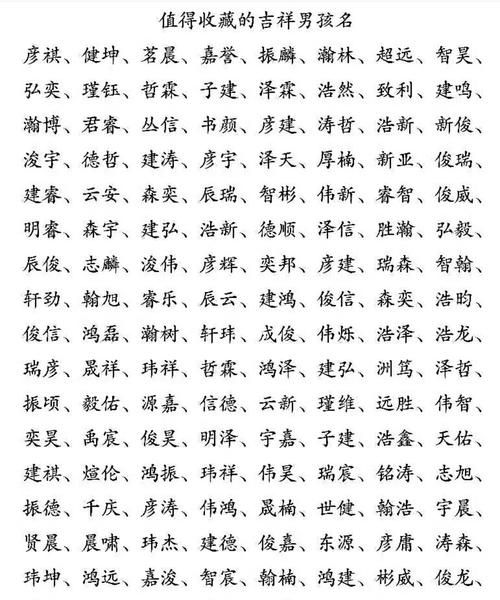 值得收藏的吉祥男孩名
彦祺、健坤、茗晨、嘉誉、振麟、瀚林、超远、智昊、
弘奕、瑾钰、哲霖、子建、泽霖、浩然、致利、建鸣、
瀚博、君睿、丛信、书颜、彦建、涛哲、浩新、新俊、
浚宇、德哲、建涛、彦宇、泽天、厚楠、新亚、俊瑞、
建睿、云安、森奕、辰瑞、智彬、伟新、睿智、俊威、
明睿、森宇、建弘、浩新、德顺、泽信、胜瀚、弘毅、
辰俊、志麟、浚伟、彦辉、奕邦、彦建、瑞森、智翰、
轩劲、翰旭、睿乐、辰云、建鸿、俊信、森奕、浩昀、
俊信、鸿磊、瀚树、轩玮、成俊、伟烁、浩泽、浩龙、
瑞彦、晟祥、玮祥、哲霖、鸿泽、建弘、洲笃、泽哲、
振顷、毅佑、源嘉、信德、云新、瑾维、远胜、伟智、
奕昊、禹宸、俊昊、明泽、宇嘉、子建、浩鑫、天佑、
建祺、煊伦、鸿振、玮祥、伟昊、瑞宸、铭涛、志旭、
振德、千庆、彦涛、伟鸿、晟楠、世健、翰浩、宇晨、
贤晨、晨啸、玮杰、建德、俊嘉、东源、彦庸、涛森、
玮坤、鸿远、嘉浚、智宸、翰楠、鸿建、彬威、俊龙、